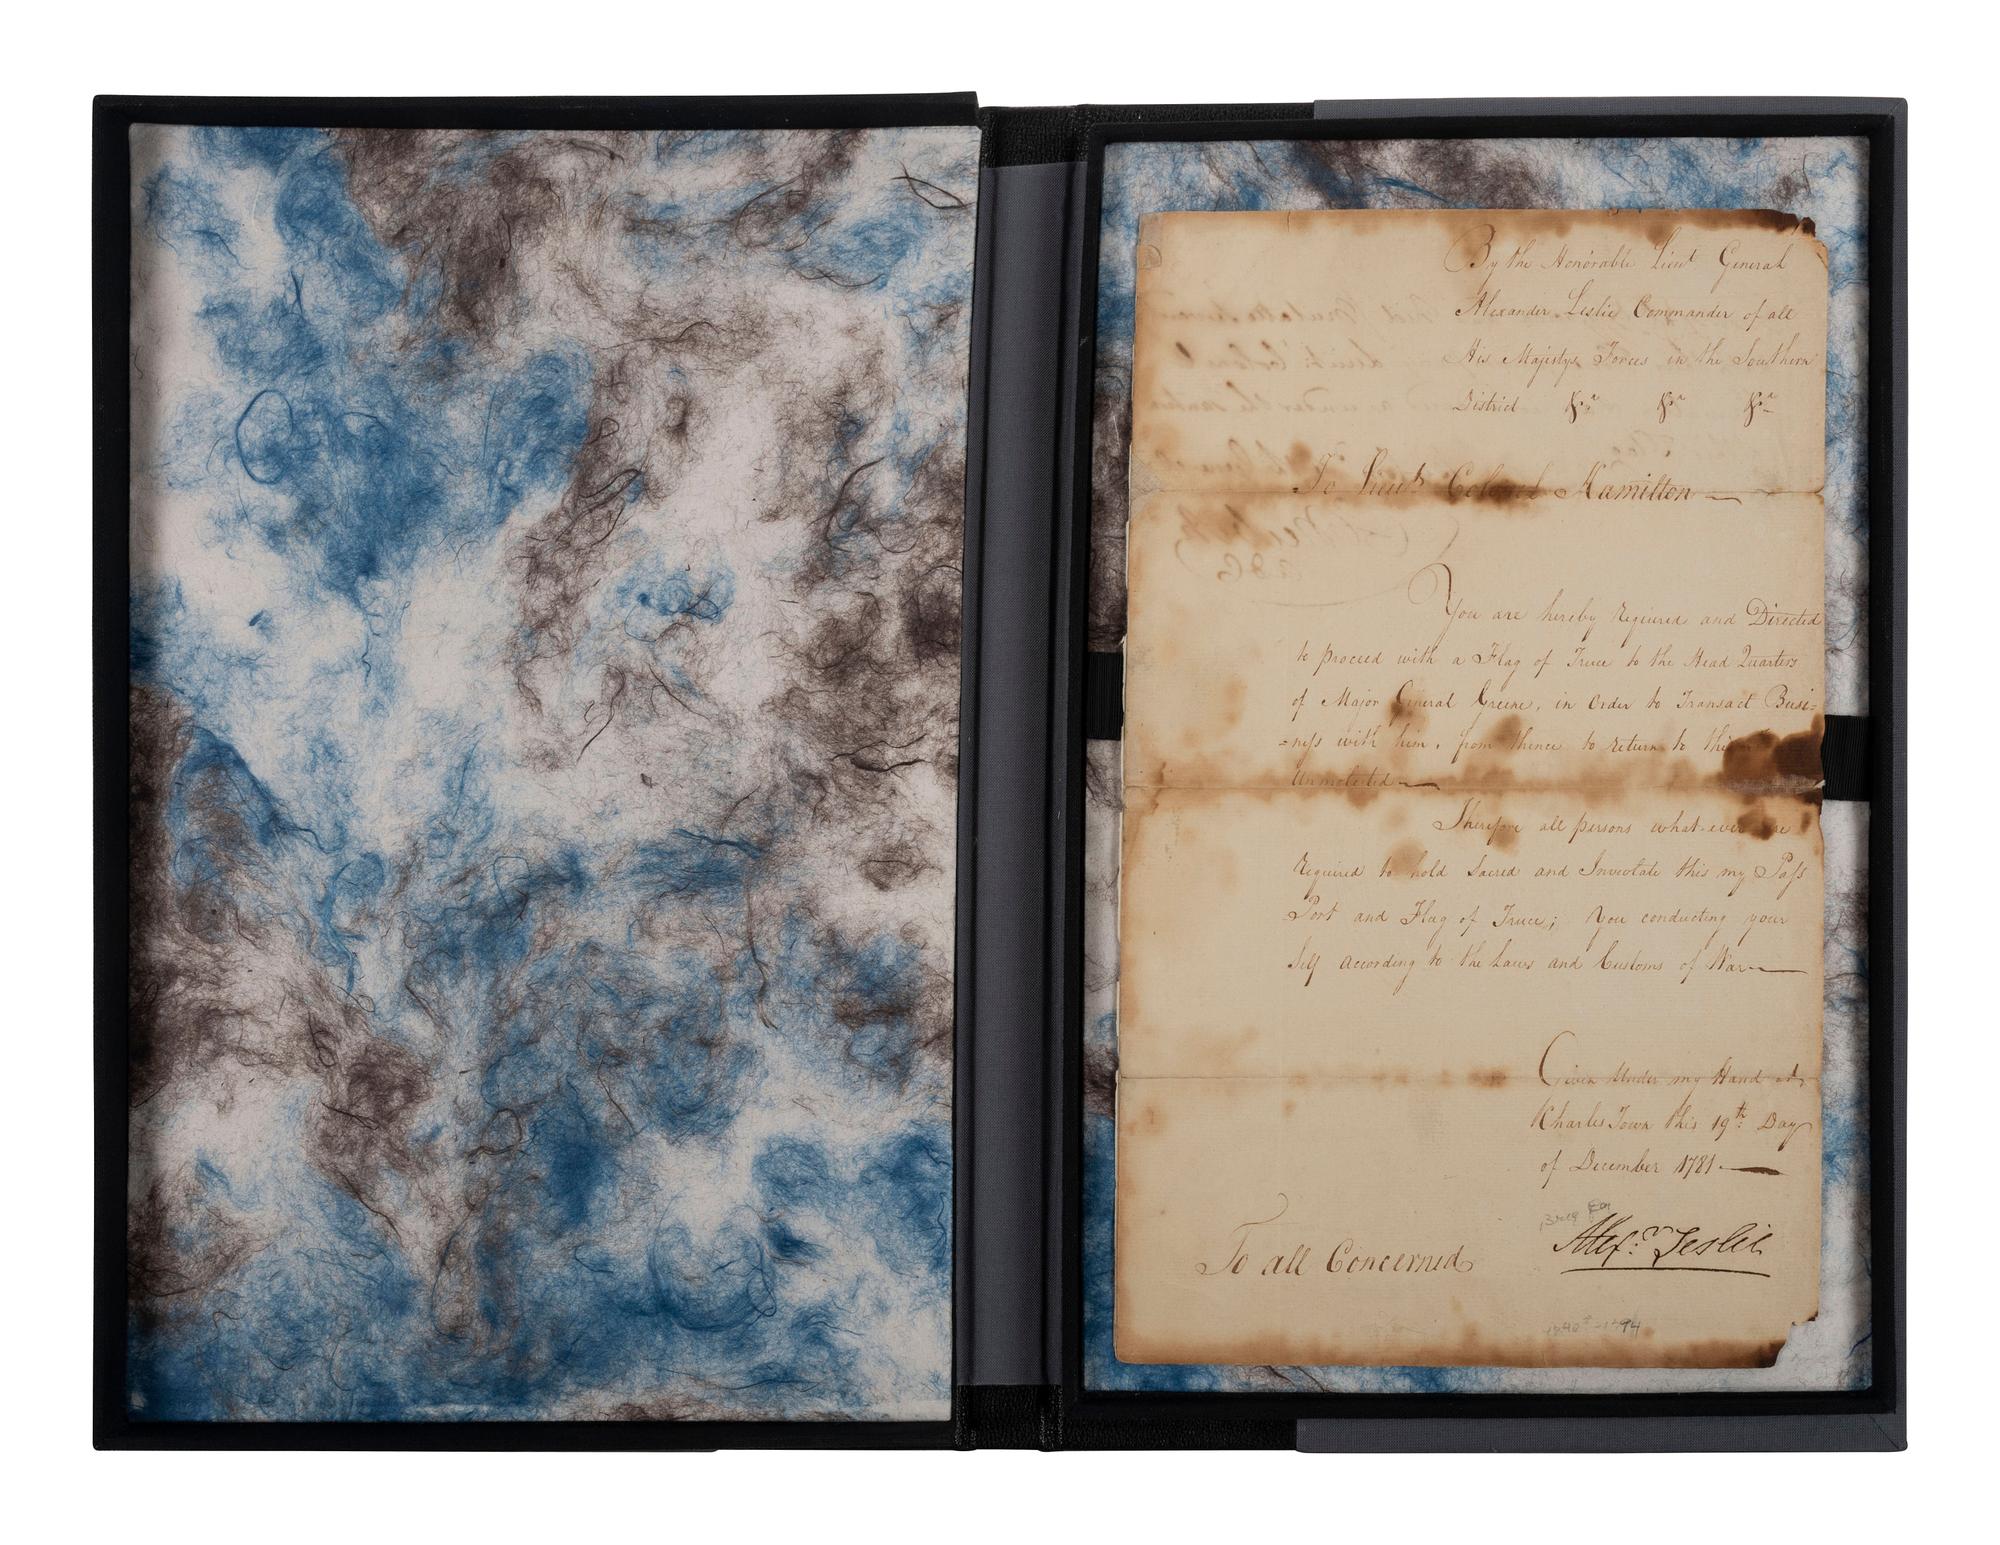 By the Honorable Lieut General
Alexander Leslie Commander of all
His Majestys Forces in the Southern
District &ca &ca &ca
To Lieut Colonel Hamilton
You are hereby required and Directed
to proceed with a Flag of Truce to the Head Quarters
of Major General Greene, in order to Transact Busi=
=ness with him, from thence to return to this
Unmolested
Therefore all persons what-ever are
required to hold Sacred and Inviolate this my Pass
=Port and Flag of Truce; You conducting your
Self according to the Laws and Customs of War
Given Under my Hand at
Charles Town this 19th Day
of December 1781
Brig Gen
Alexr: Leslie
To all Concerned